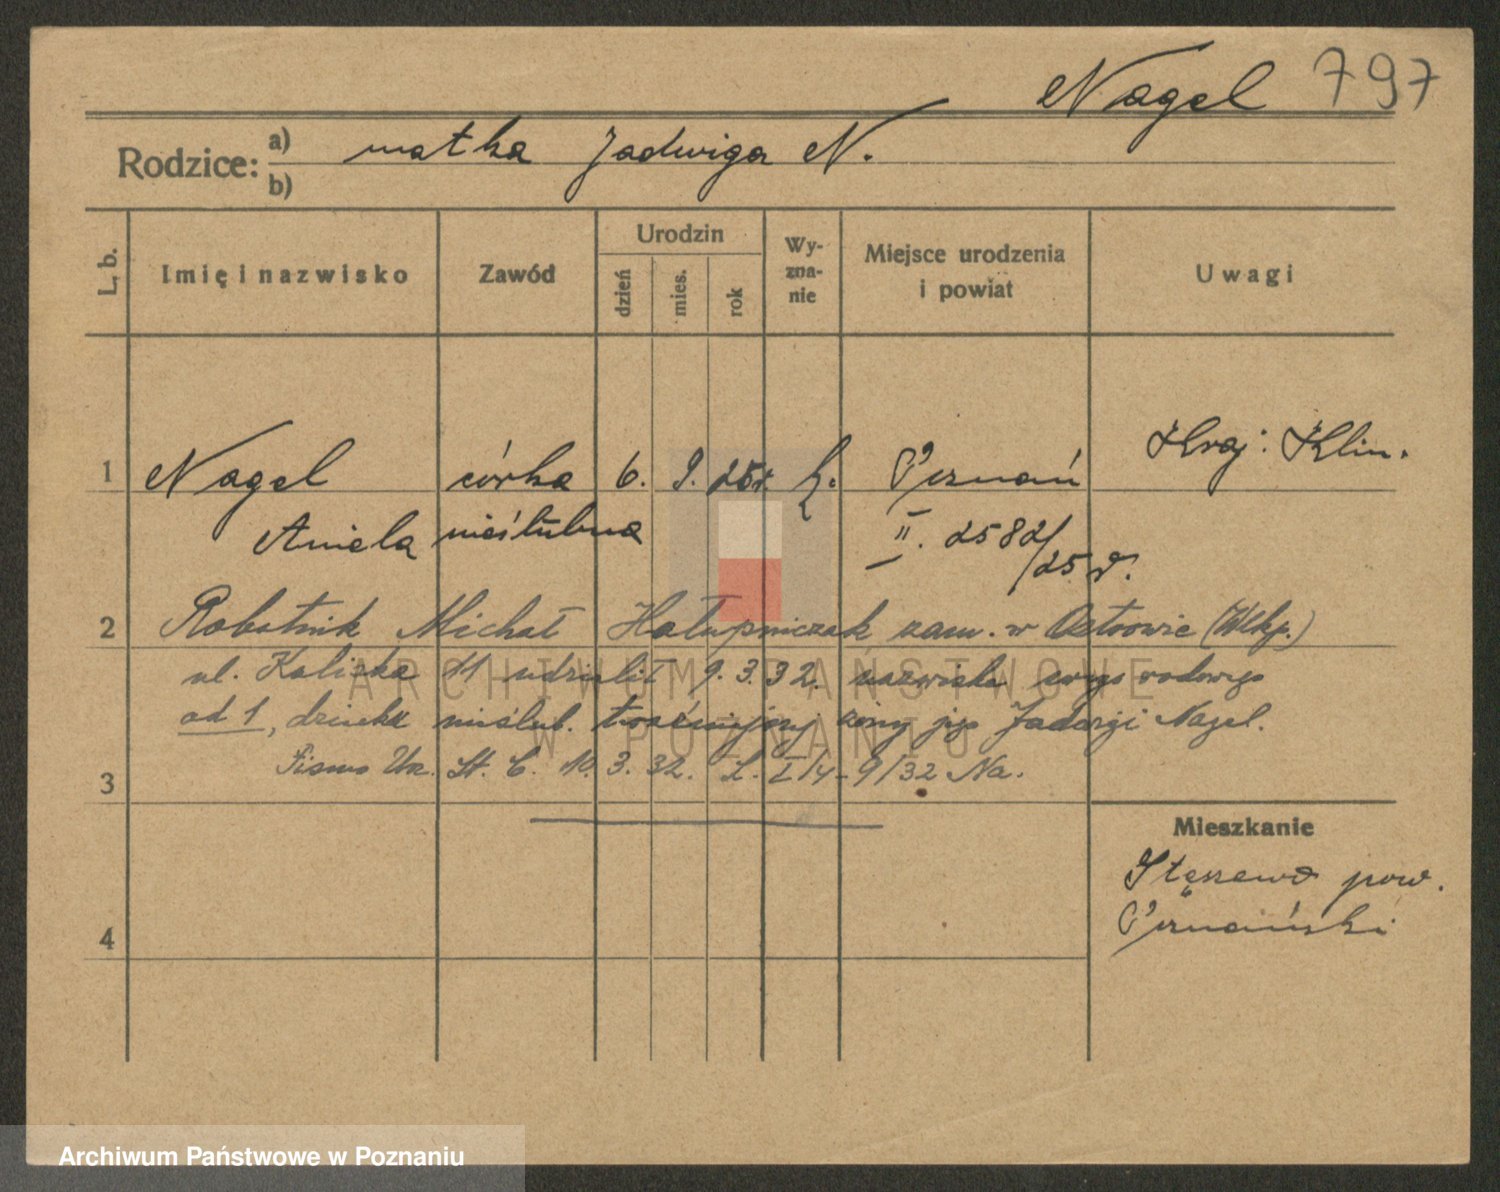 Nagel 797
Rodzice: a) matka Jadwiga N.
b)
L. b. Imię i nazwisko Zawód Urodzin dzień mies. rok Wy-zna-nie Miejsce urodzenia i powiat Uwagi
Kraj. Klin.
1 Nagel córka 6. 9. 25r. k. Poznań
Aniela nieślubna II. 2582/25 r.
2 Robotnik Michał Hałupniczak zam. w Ostrowie (Wlkp.)
ul. Kaliska 11 udzielił 9.3.32. nazwiska swego rodowego
od 1, dziecku nieślub. żony jego Jadwigi Nagel.
3 Pismo Urz. St. C. 10.3.32. L. I/4-9/32 Na.
Mieszkanie
Stęszewo pow.
Poznański
4
ARCHIWUM PAŃSTWOWE
W POZNANIU
Archiwum Państwowe w Poznaniu